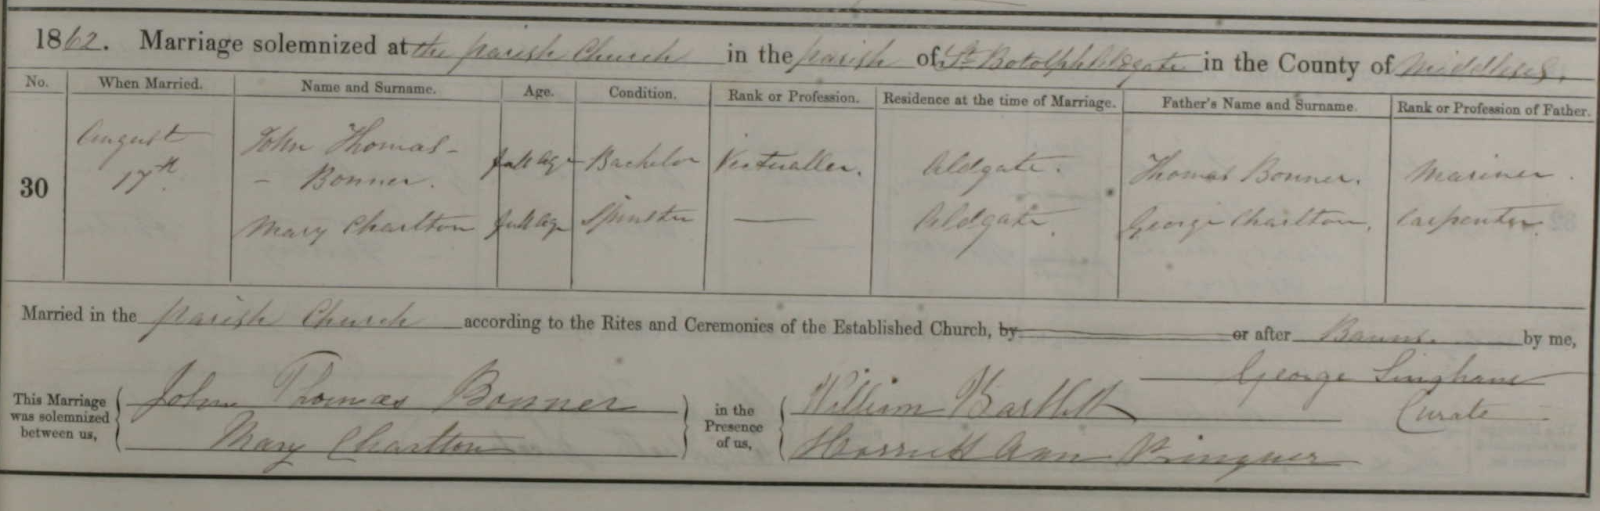 1862. Marriage solemnized at the parish Church in the parish of St Botolph Aldgate in the County of Middlesex.
No. When Married. Name and Surname. Age. Condition. Rank or Profession. Residence at the time of Marriage. Father's Name and Surname. Rank or Profession of Father.
30 August 17th John Thomas - - Bonner. full age Bachelor Victualler. Aldgate. Thomas Bonner. Mariner.
Mary Charlton full age Spinster — Aldgate. George Charlton. Carpenter.
Married in the parish Church according to the Rites and Ceremonies of the Established Church, by or after Banns. by me,
George Curate
This Marriage was solemnized between us, John Thomas Bonner in the Presence of us, William Bartlett
Mary Charlton Harriett Ann